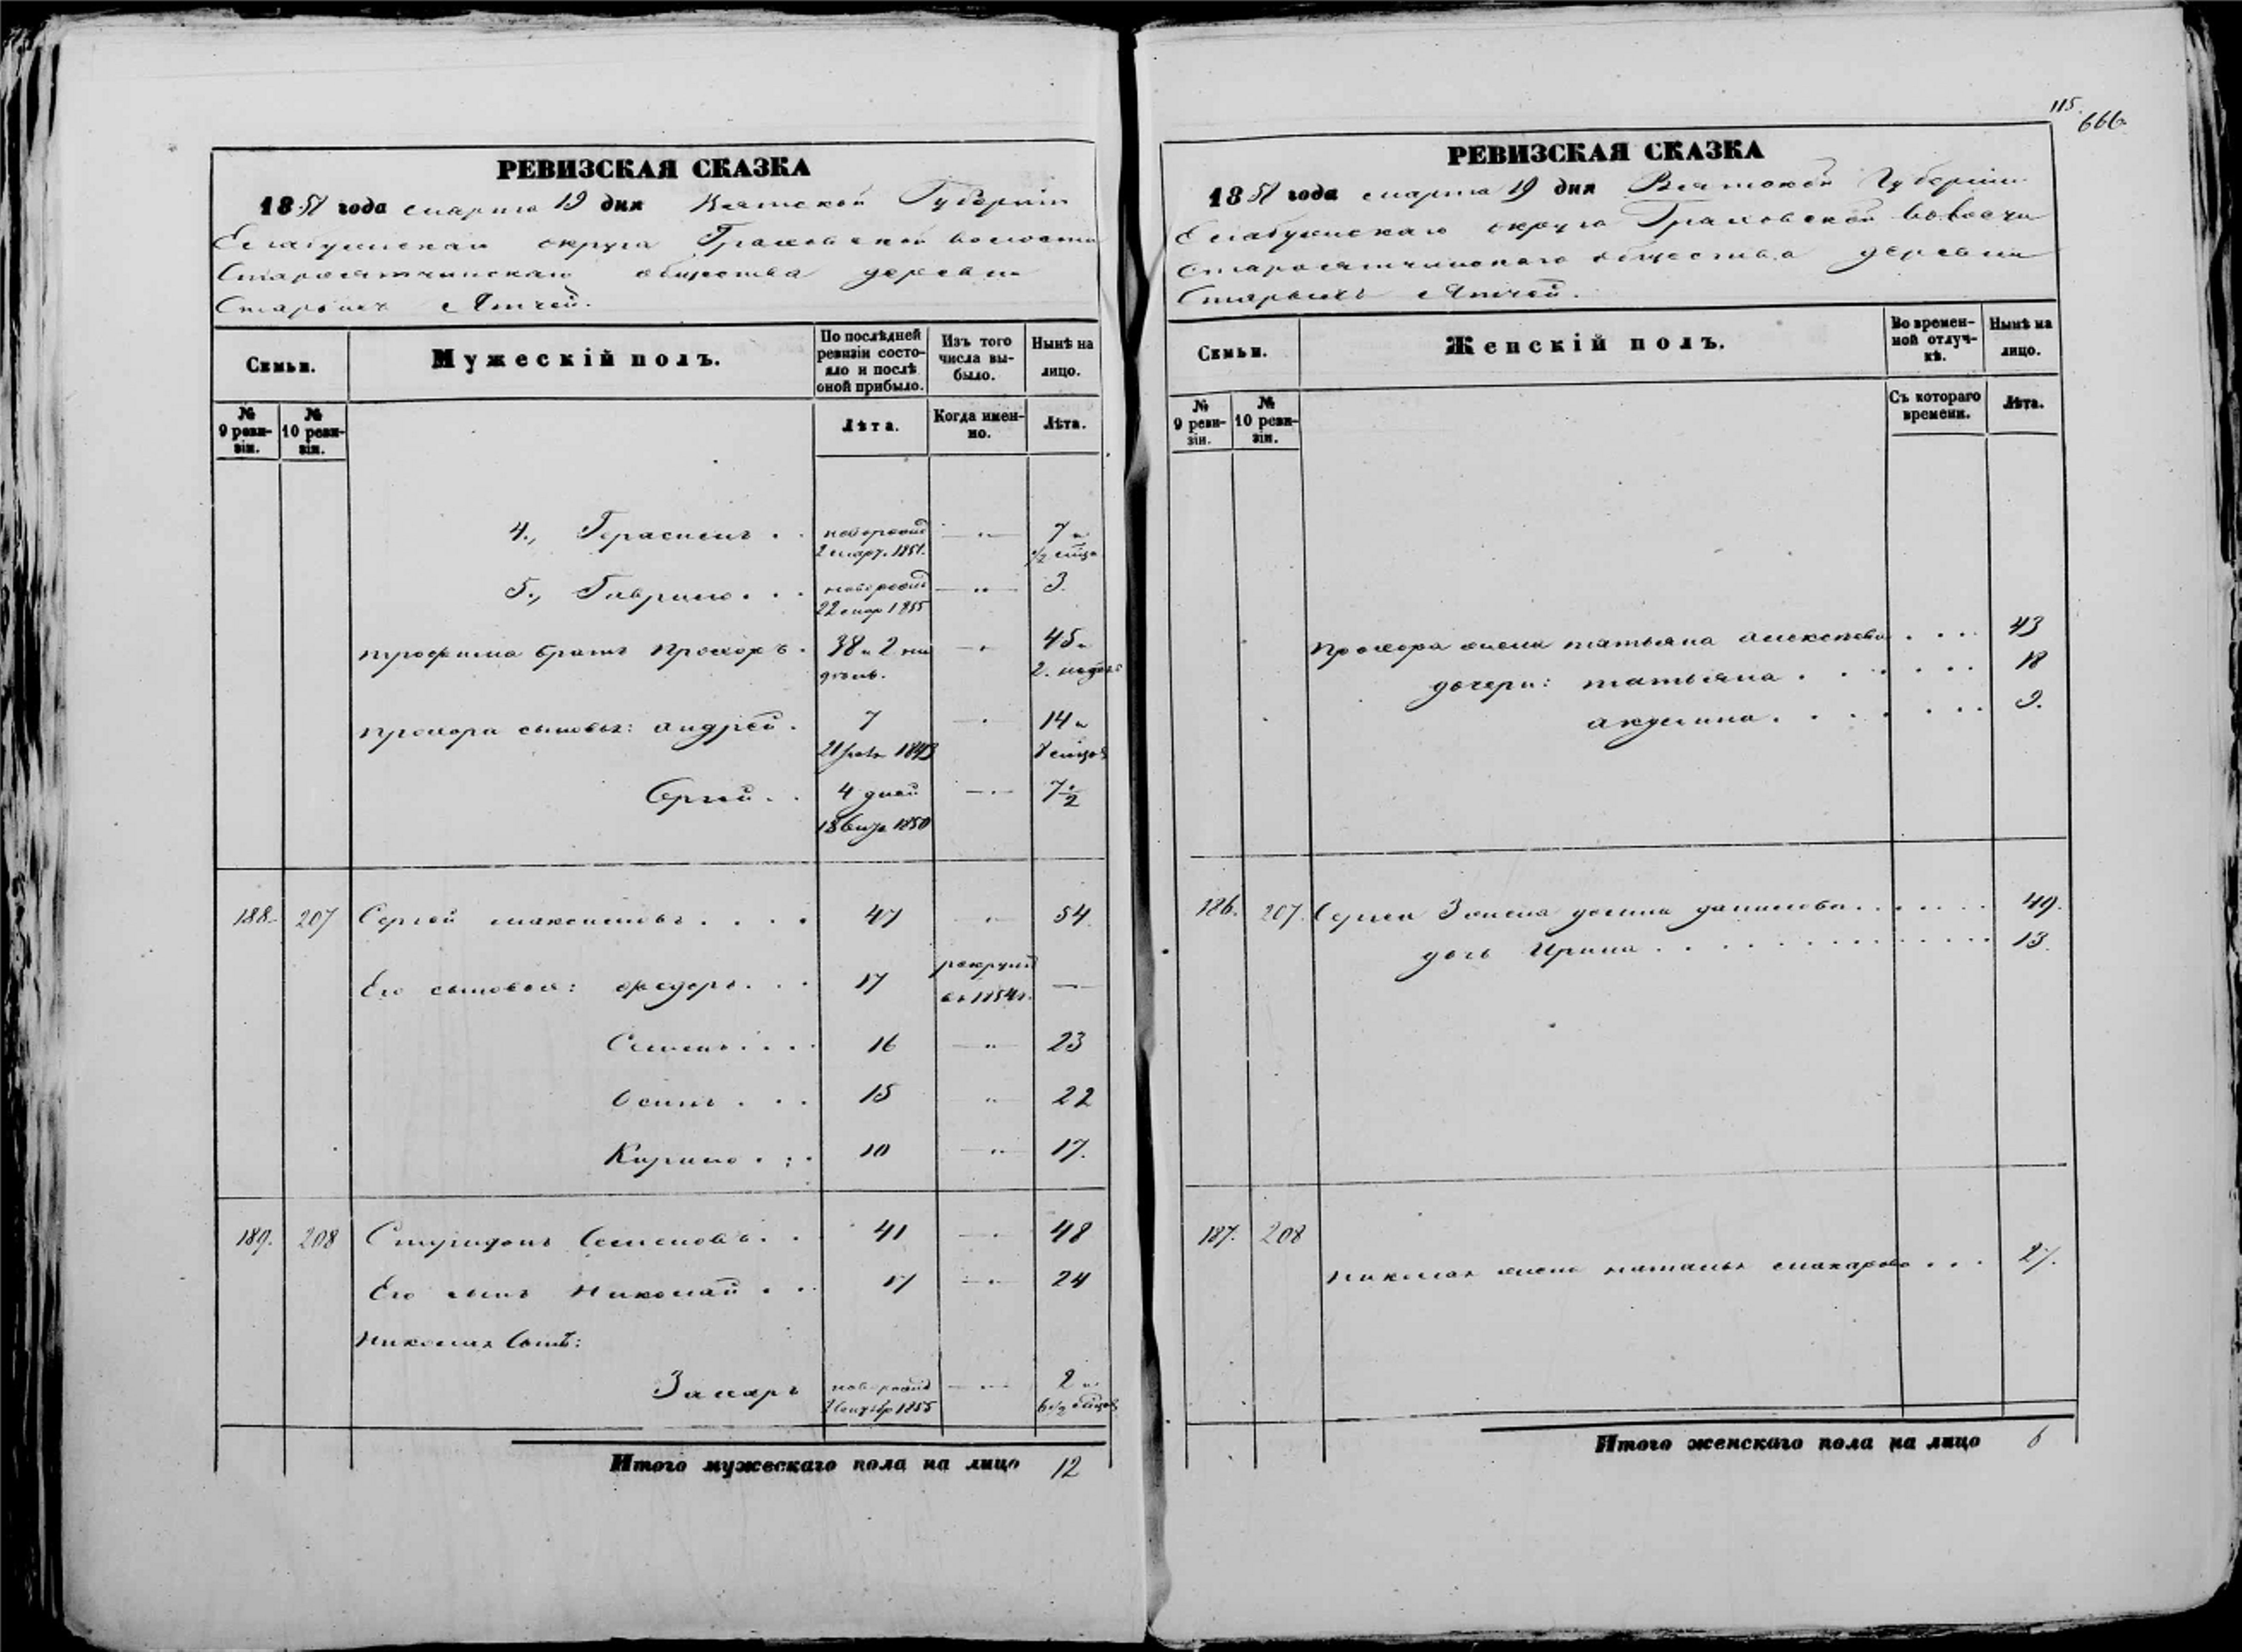 РЕВИЗСКАЯ СКАЗКА
1858 года марта 19 дня Вятской Губерніи
Елабужскаго округа Граховской волости
Староятчинскаго общества деревни
Старыхъ Ятчей.
Семьи.
Мужескій полъ.
По послѣдней ревизіи состояло и послѣ оной прибыло.
Изъ того числа выбыло.
Нынѣ на лицо.
№ 9 ревизіи.
№ 10 ревизіи.
Лѣта.
Когда именно.
Лѣта.
4., Герасимъ . . новорожд — „ — 7 и
2 март. 1851. 1/2 мцо
5., Гаврило . . . новорожд — „ — 3.
22 мар 1855
трофима братъ Прохоръ . 38 и 2 — „ 45 и
2. недел
прохора сыновья: андрей . 7 — „ 14 и
1843 8 мцов
Сергей . . 4 дней — „ — 7 1/2
1850
188. 207 Сергей максимовъ . . . . 47 „ 54.
Его сыновья: федоръ . . . 17 рекрутъ —
въ 1854 г.
Семенъ . . . . 16 — „ — 23
Осипъ . . . 15 „ 22
Кирило . . . 10 — „ — 17.
189. 208 Спиридонъ Семеновъ . . 41 — „ 48
Его сынъ Николай . . 17 — „ — 24
Николая Сынъ:
Захаръ новорожд — „ — 2 и
1855 6 1/2 мцов
Итого мужескаго пола на лицо 12
115.
666.
РЕВИЗСКАЯ СКАЗКА
1858 года марта 19 дня Вятской Губерніи
Елабужскаго округа Граховской волости
Староятчинскаго общества деревни
Старыхъ Ятчей.
Семьи.
Женскій полъ.
Во временной отлучкѣ.
Нынѣ на лицо.
№ 9 ревизіи.
№ 10 ревизіи.
Съ котораго времени.
Лѣта.
Прохора жена татьяна алексеева . . . 43
дочери: татьяна . . . . . . 18
акулина . . . . . . . 9.
186. 207. Сергея жена данилова . . . . . . 49.
дочь Ирина . . . . . . . . . . . . . 13.
187. 208
Николая жена наталья макарова . . . 27.
Итого женскаго пола на лицо 6